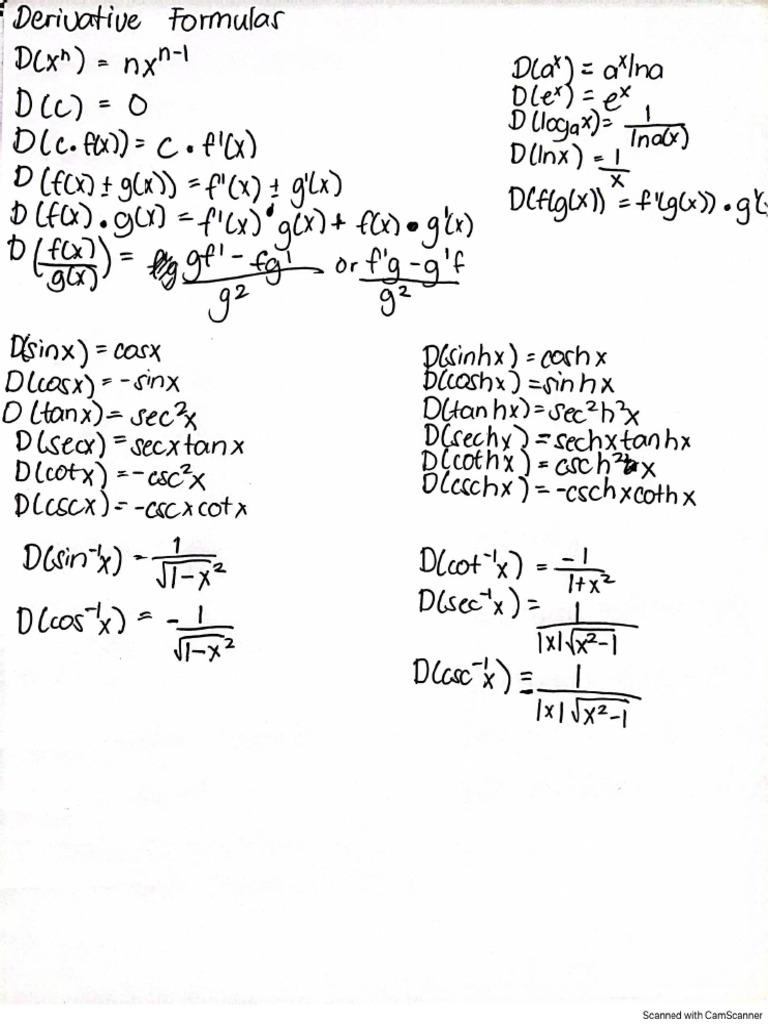 Derivative Formulas
D(xⁿ) = nxⁿ⁻¹
D(c) = 0
D(c · f(x)) = c · f'(x)
D(f(x) ± g(x)) = f'(x) ± g'(x)
D(f(x) · g(x) = f'(x) · g(x) + f(x) · g'(x)
D(f(x)/g(x)) = gf' - fg'/g² or f'g - g'f/g²
D(aˣ) = aˣlna
D(eˣ) = eˣ
D(logₐx) = 1/lna(x)
D(lnx) = 1/x
D(f(g(x)) = f'(g(x)) · g'(
D(sinx) = cosx
D(cosx) = -sinx
D(tanx) = sec²x
D(secx) = secxtanx
D(cotx) = -csc²x
D(cscx) = -cscxcotx
D(sinhx) = coshx
D(coshx) = sinhx
D(tanhx) = sec²h²x
D(sechx) = sechxtanhx
D(cothx) = csch²x
D(cschx) = -cschxcothx
D(sin⁻¹x) = 1/√1-x²
D(cos⁻¹x) = -1/√1-x²
D(cot⁻¹x) = -1/1+x²
D(sec⁻¹x) = 1/|x|√x²-1
D(csc⁻¹x) = 1/|x|√x²-1
Scanned with CamScanner